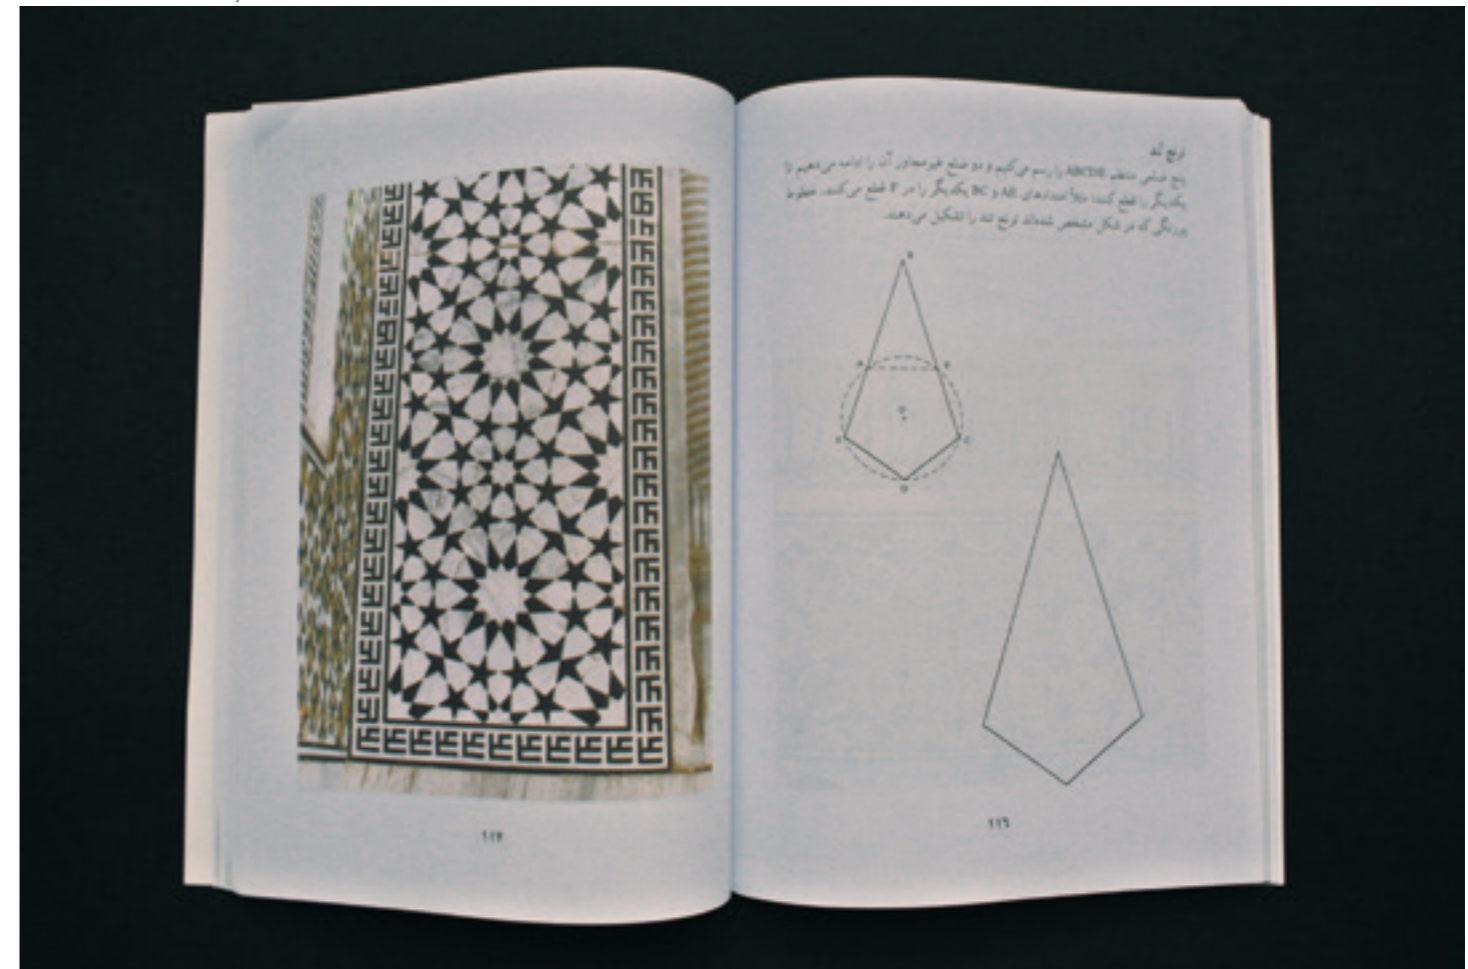 ترنج تند
پنج ضلعی منتظم ABCDE را رسم می‌کنیم و دو ضلع غیرمجاور آن را ادامه می‌دهیم تا
یکدیگر را قطع کنند؛ مثلاً امتدادهای AE و BC یکدیگر را در F قطع می‌کنند. خطوط
پررنگی که در شکل مشخص شده‌اند ترنج تند را تشکیل می‌دهند.
A B
O
E C
D